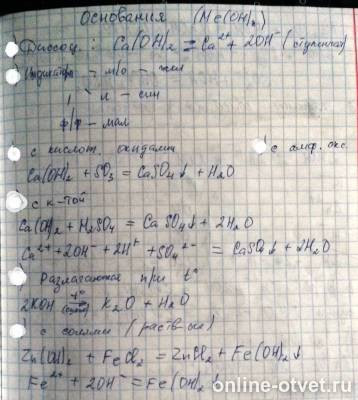 Основания (Me(OH)ₙ)
Диссоц.: Ca(OH)₂ ⇄ Ca²⁺ + 2OH⁻ (ступенчат)
Индикаторы – м/о – жел
л – син
ф/ф – мал
с кислот. оксидами с амф. окс.
Ca(OH)₂ + SO₃ = CaSO₄↓ + H₂O
с к-той
Ca(OH)₂ + H₂SO₄ = CaSO₄↓ + 2H₂O
Ca²⁺ + 2OH⁻ + 2H⁺ + SO₄²⁻ = CaSO₄↓ + 2H₂O
Разлагаются при t°
2KOH = K₂O + H₂O
с солями (раств-ые)
Zn(OH)₂ + FeCl₂ = ZnCl₂ + Fe(OH)₂↓
Fe²⁺ + 2OH⁻ = Fe(OH)₂↓
online-otvet.ru